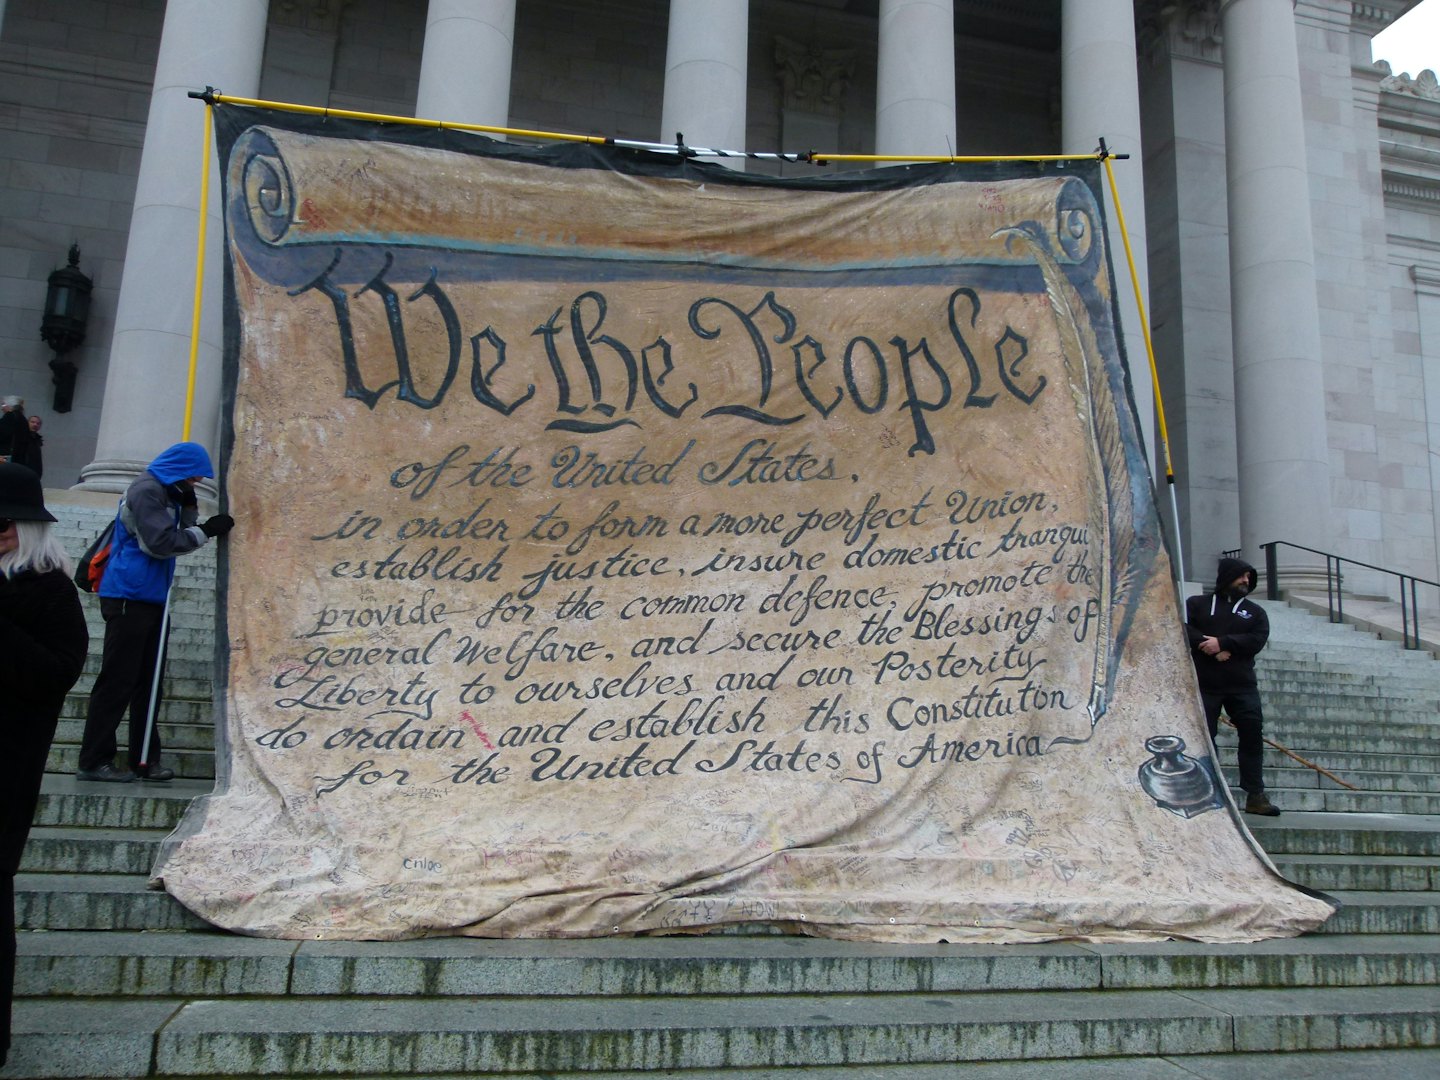 We the People
of the United States,
in order to form a more perfect Union,
establish justice, insure domestic tranqui
provide for the common defence, promote the
general Welfare, and secure the Blessings of
Liberty to ourselves and our Posterity
do ordain and establish this Constitution
for the United States of America
Chloe
NOW